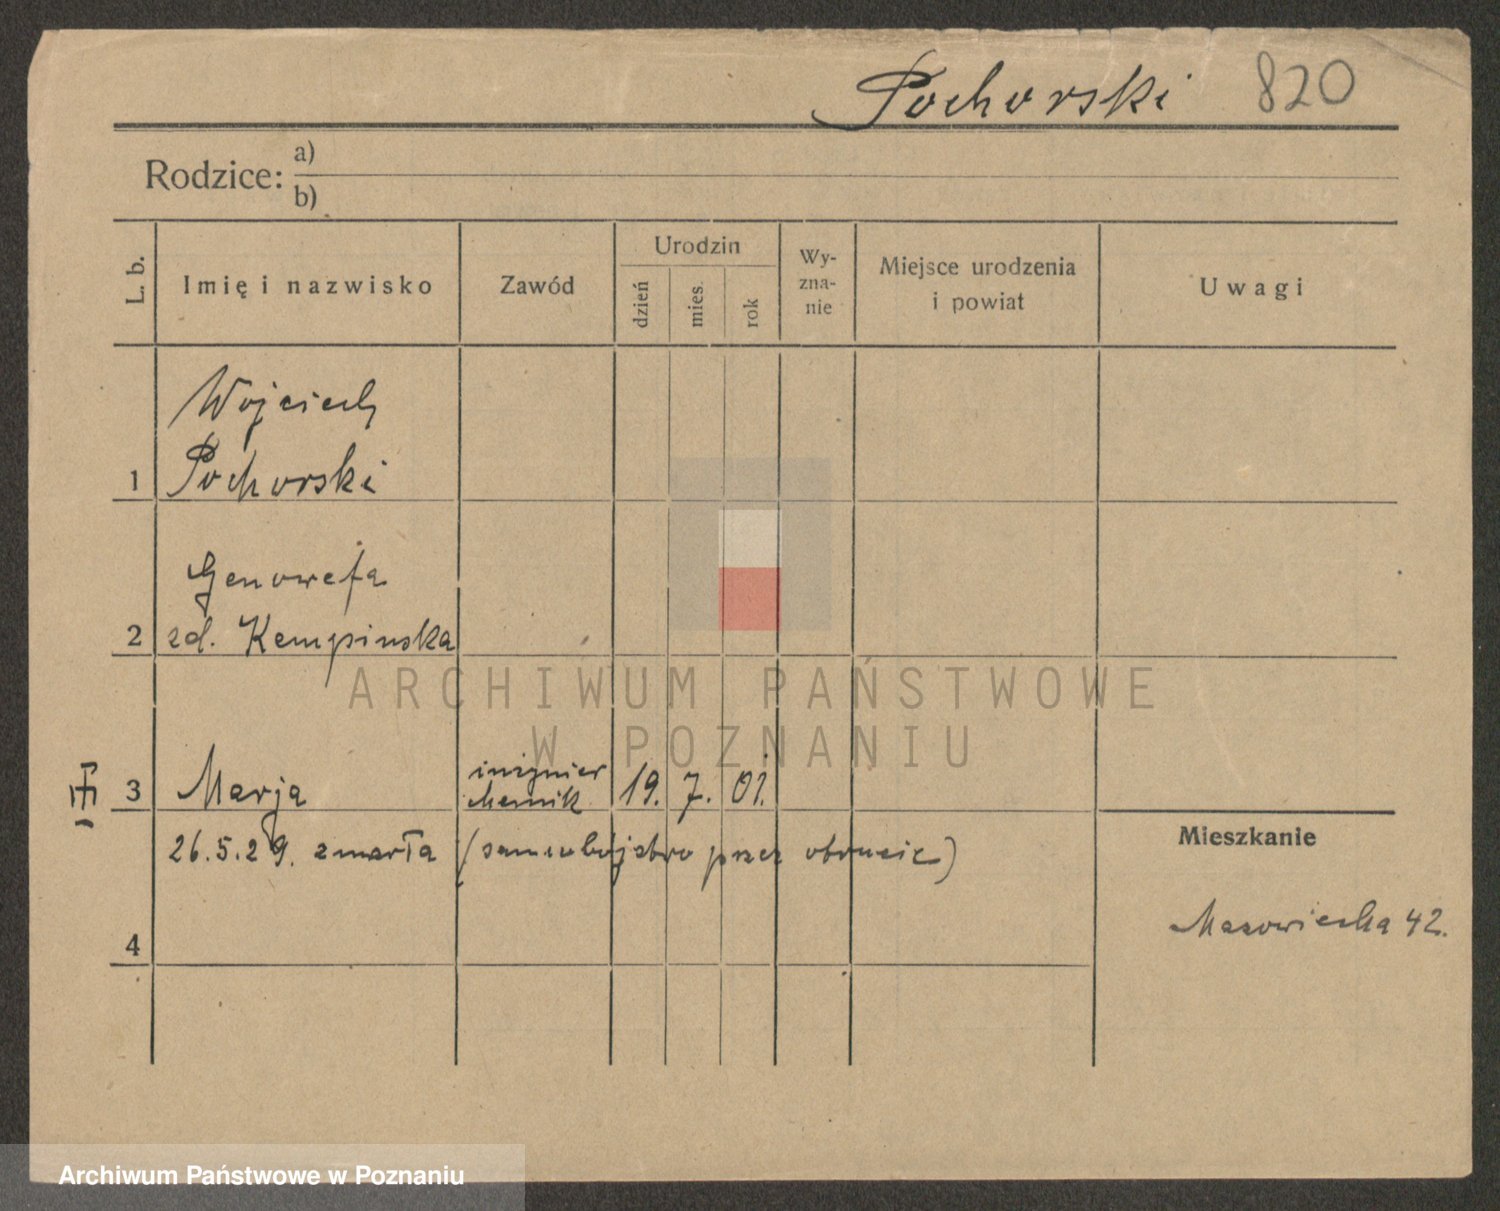 Pochorski 820
Rodzice: a)
b)
L. b. Imię i nazwisko Zawód Urodzin dzień mies. rok Wy-zna-nie Miejsce urodzenia i powiat Uwagi
Wojciech
1 Pochorski
Genowefa
2 zd. Kempinska
inżynier
3 Marja chemik 19. 7. 01.
26.5.29. zmarła (samobójstwo przez otrucie)
Mieszkanie
Mazowiecka 42.
4
ARCHIWUM PAŃSTWOWE
W POZNANIU
Archiwum Państwowe w Poznaniu